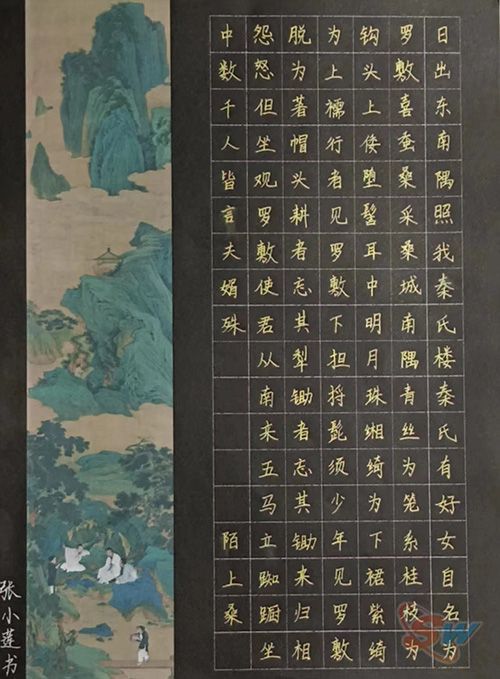 日出东南隅照我秦氏楼秦氏有好女自名为
罗敷喜蚕桑采桑城南隅青丝为笼系桂枝为
钩头上倭堕髻耳中明月珠缃绮为下裙紫绮
为上襦行者见罗敷下担捋髭须少年见罗敷
脱为著帽头耕者忘其犁锄者忘其锄来归相
怨怒但坐观罗敷使君从南来五马立踟蹰坐
中数千人皆言夫婿殊
陌上桑
张小莲书
SW